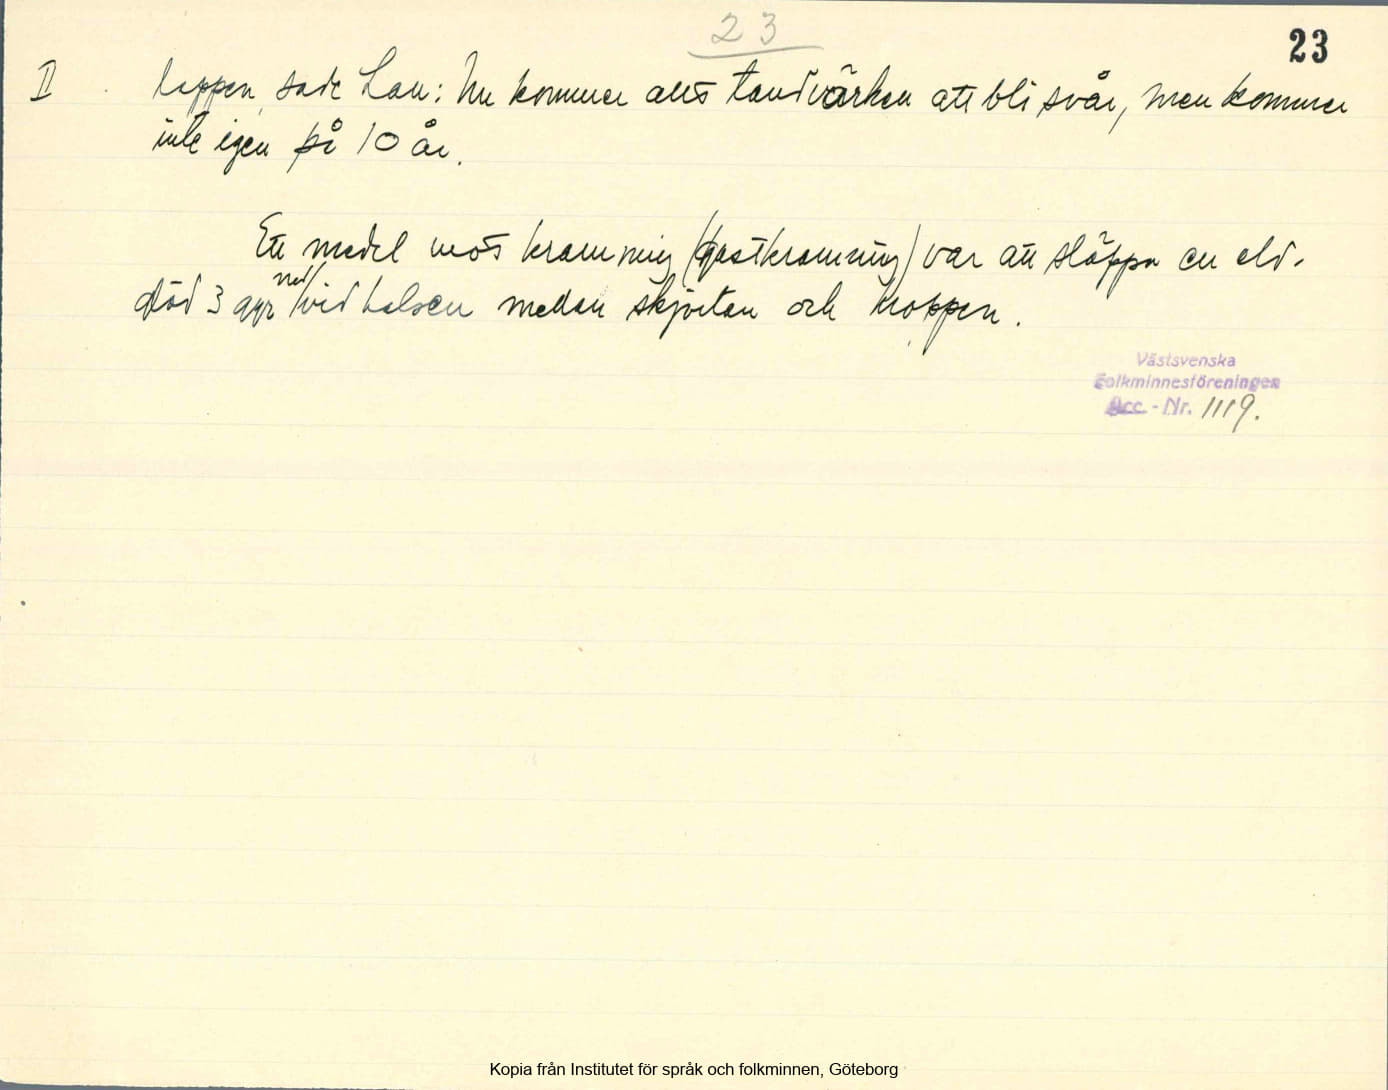 23
23
II lappen, sade han: Nu kommer allt tandvärken att bli svår, men kommer
inte igen på 10 år.
Ett medel mot kramning (gastkramning) var att släppa en eld-
glöd 3 ggr ned vid halsen mellan skjortan och kroppen.
Västsvenska
Folkminnesföreningen
Acc. - Nr. 1119.
Kopia från Institutet för språk och folkminnen, Göteborg